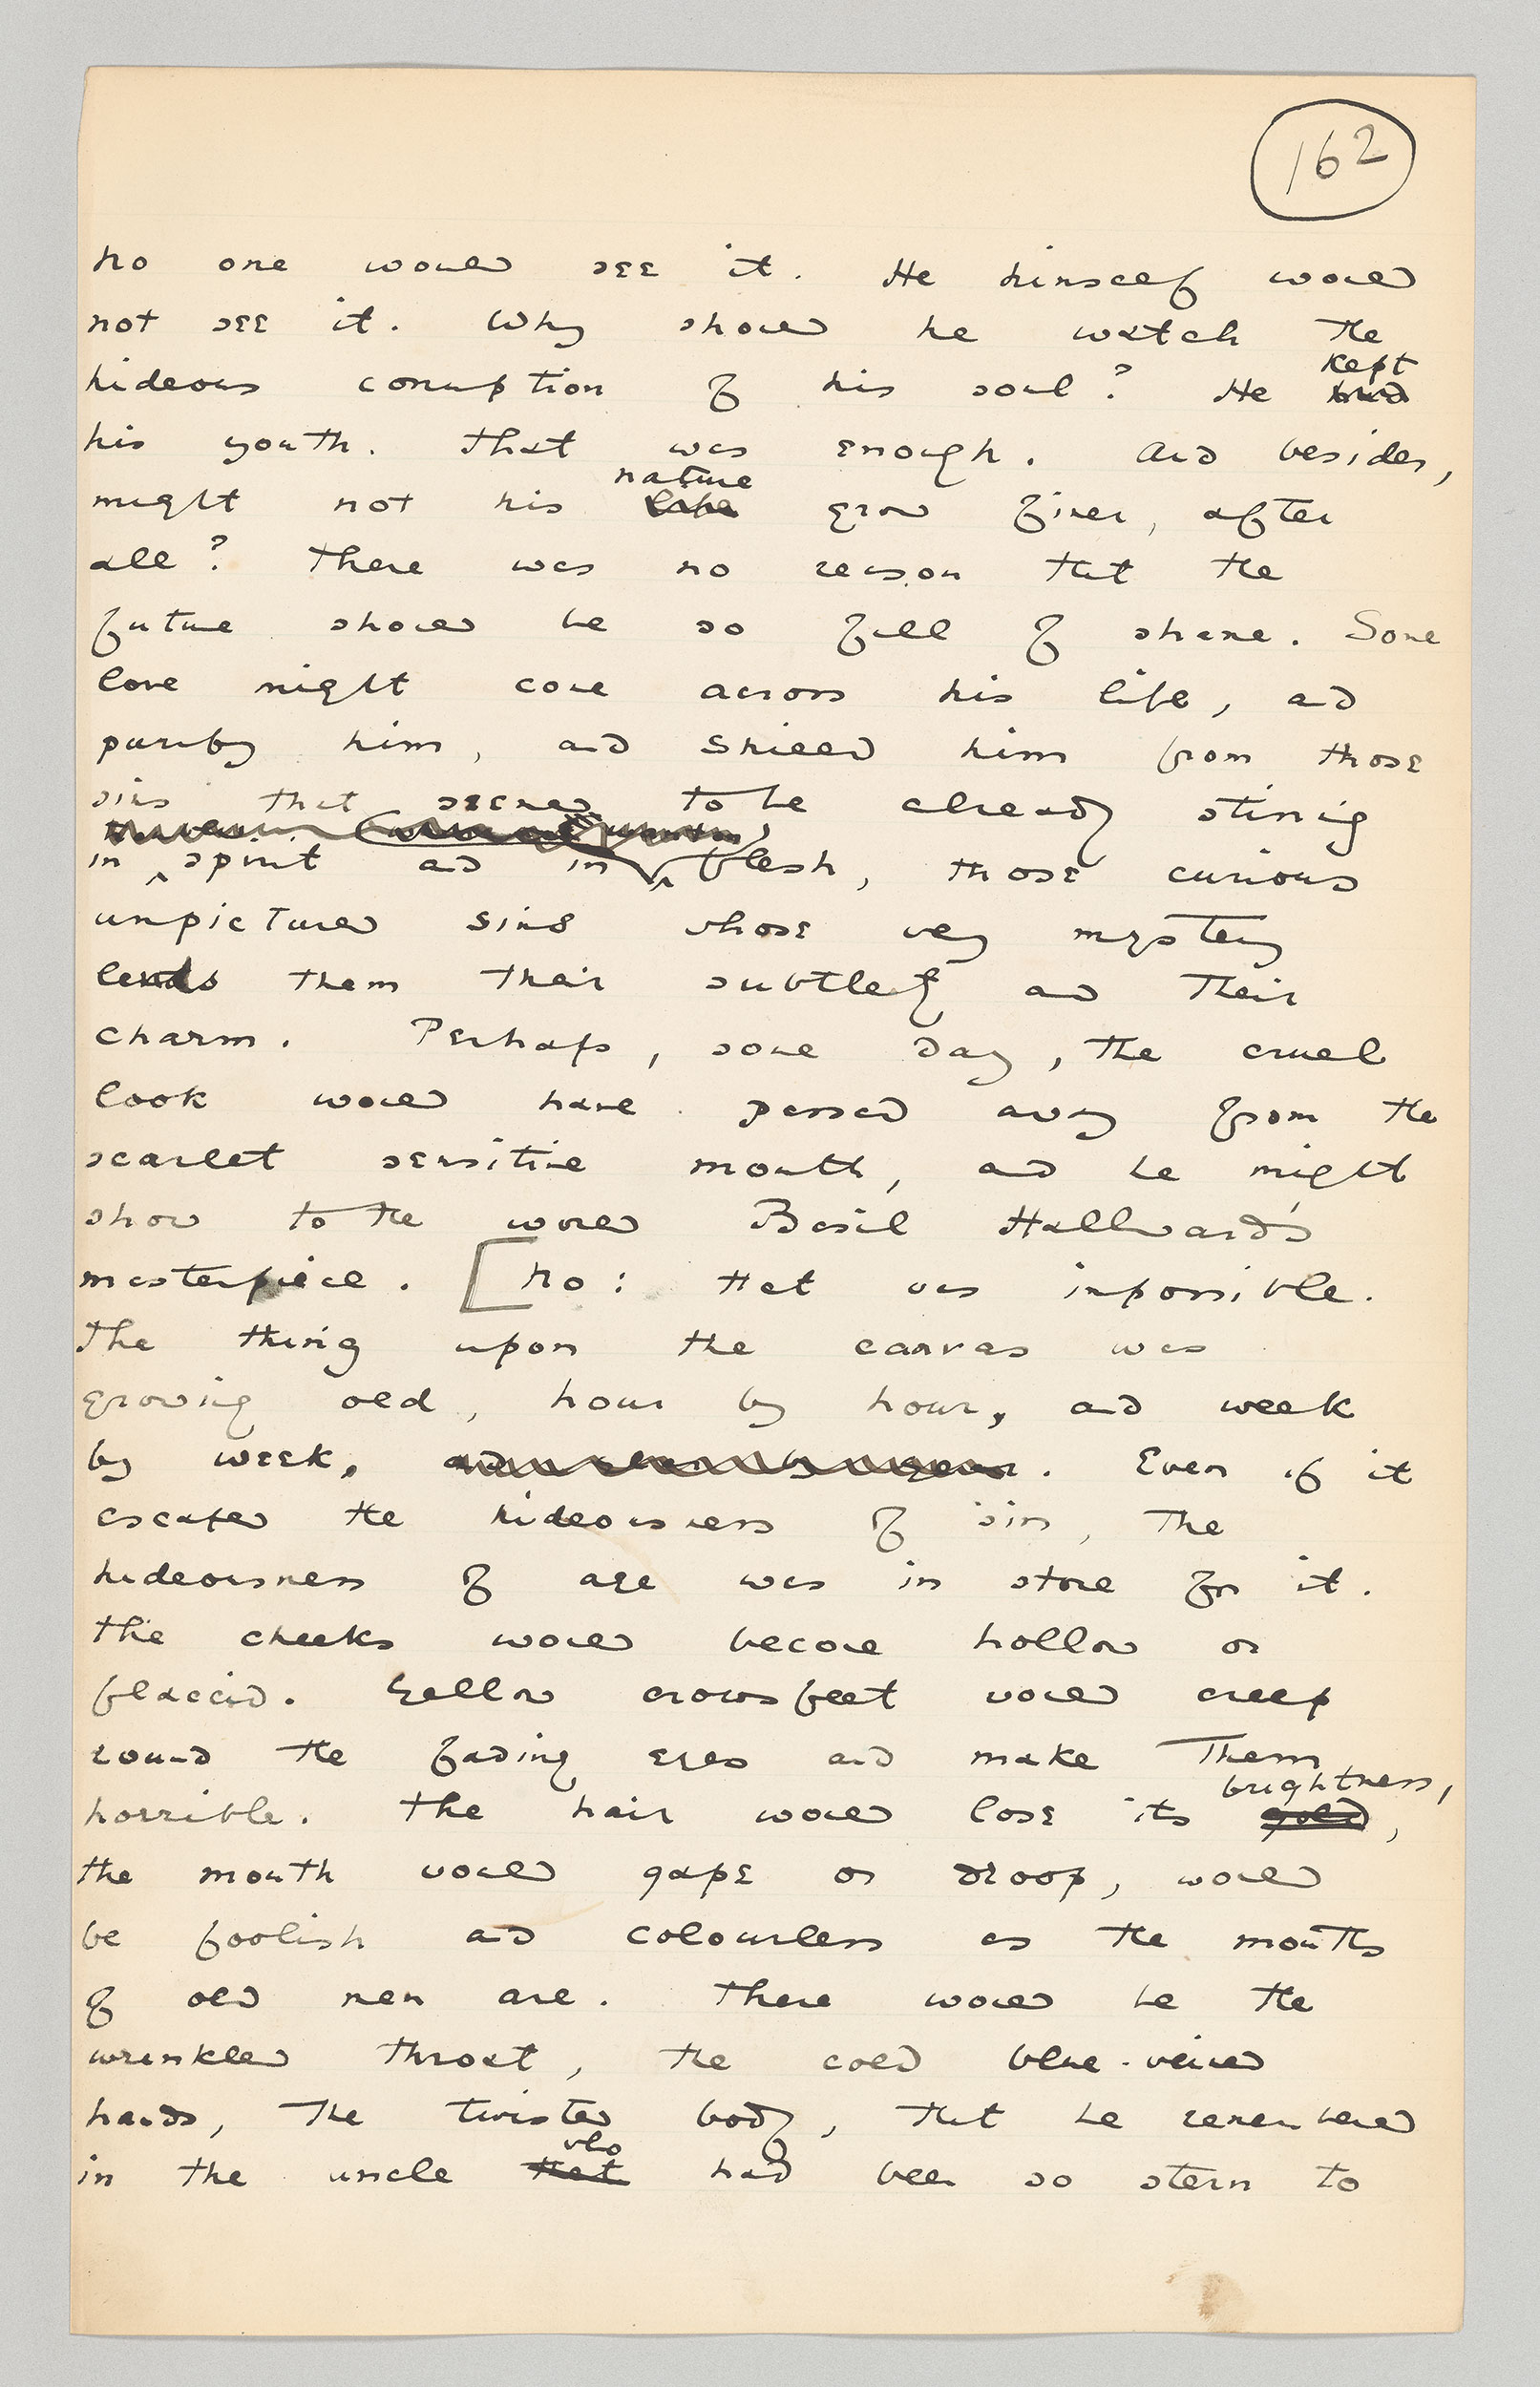 162
no one would see it. He himself would
not see it. Why should he watch the
kept
hideous corruption of his soul? He had
his youth. That was enough. And besides,
nature
might not his life grow finer, after
all? There was no reason that the
future should be so full of shame. Some
love might come across his life, and
purify him, and shield him from those
sins that seemed to be already stirring
in spirit and in flesh, those curious
unpictured sins whose very mystery
lends them their subtlety and their
charm. Perhaps, some day, the cruel
look would have passed away from the
scarlet sensitive mouth, and he might
show to the world Basil Hallward's
masterpiece. [No: that was impossible.
The thing upon the canvas was
growing old, hour by hour, and week
by week, and year by year. Even if it
escaped the hideousness of sin, the
hideousness of age was in store for it.
The cheeks would become hollow or
flaccid. Yellow crowsfeet would creep
round the fading eyes and make them
brightness,
horrible. The hair would lose its gold,
the mouth would gape or droop, would
be foolish and colourless as the mouths
of old men are. There would be the
wrinkled throat, the cold blue-veined
hands, the twisted body, that he remembered
who
in the uncle that had been so stern to